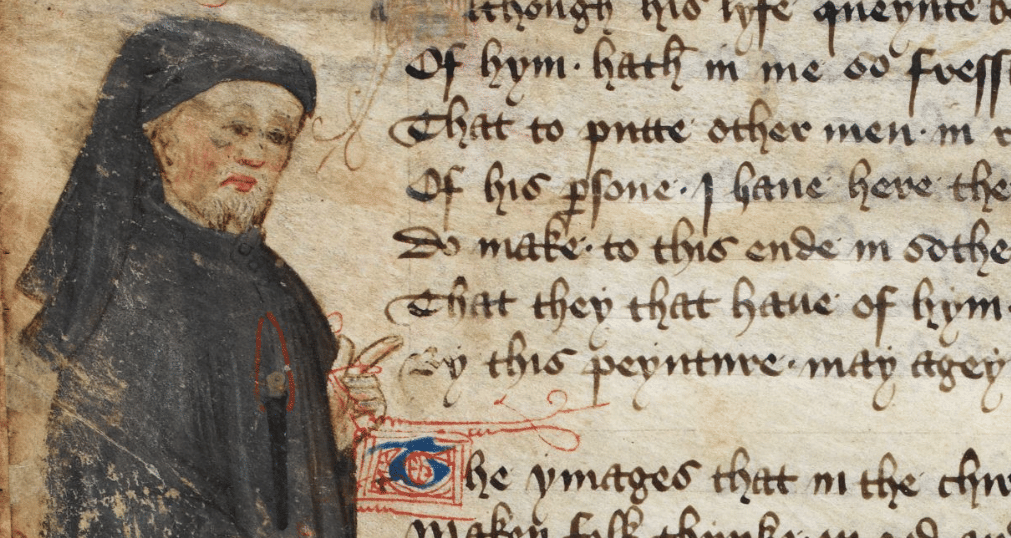 Although his lyfe queynte b
Of hym · hath in me so fressh
That to putte other men · in r
Of his ꝑsone · I haue here the
Do make · to this ende in sothe
That they that haue of hym ·
By this peynture · may ageyn
The ymages that in the chir
Maken folk thynke · on god and